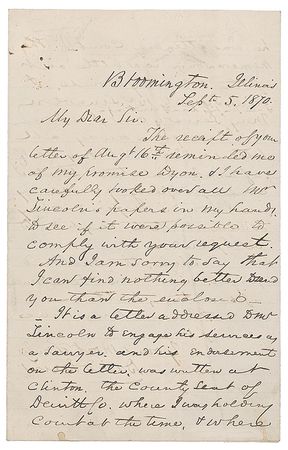 Bloomington. Illinois
Sept 5. 1870.
My Dear Sir.
The receipt of your
letter of Augt 16th reminded me
of my promise to you. & I have
carefully looked over all Mr
Lincoln's papers in my hands
to see if it were possible to
comply with your request.
And I am sorry to say that
I can find nothing better to send
you than the enclosed —
It is a letter addressed to Mr
Lincoln to engage his services as
a lawyer. and his endorsement
on the letter, was written at
Clinton. the County Seat of
Dewitt Co. where I was holding
Court at the time, & where